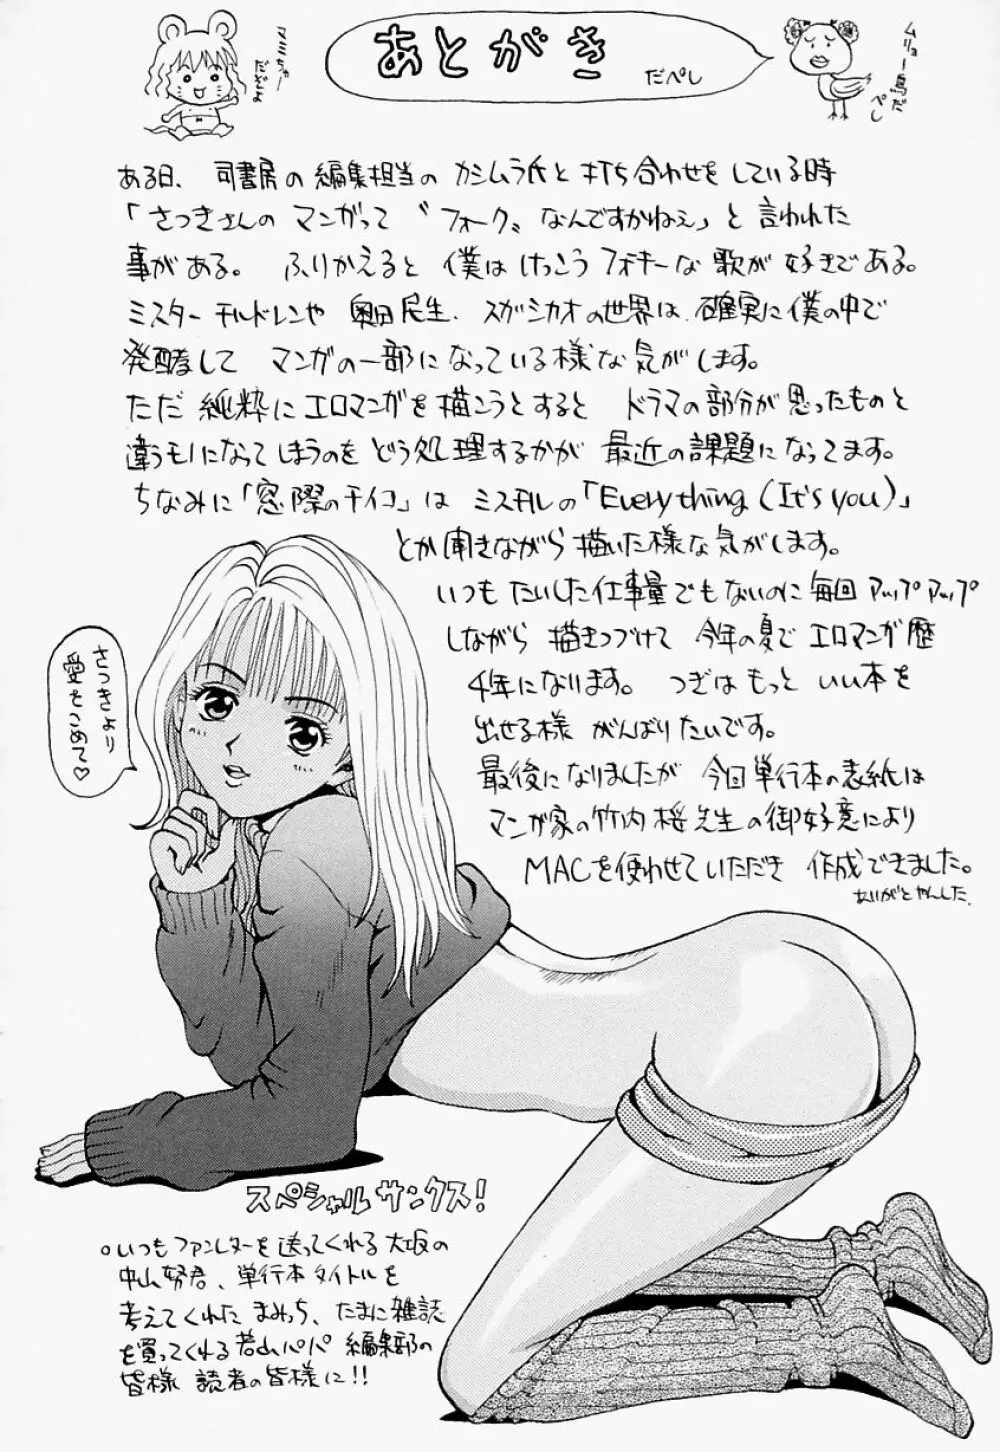 あとがき
だぺし
マミちゃん
だぞよ
ムリョー鳥だ
ぺし
ある日、司書房の編集担当のカシムラ氏と打ち合わせをしている時
「さつきさんのマンガって〝フォーク〟なんですかねぇ」と言われた
事がある。ふりかえると僕はけっこうフォーキーな歌が好きである。
ミスターチルドレンや奥田民生、スガシカオの世界は確実に僕の中で
発酵してマンガの一部になっている様な気がします。
ただ純粋にエロマンガを描こうとするとドラマの部分が思ったものと
違うモノになってしまうのをどう処理するかが最近の課題になってます。
ちなみに「窓際のチイコ」はミスチルの「Everything (It's you)」
とか聞きながら描いた様な気がします。
いつもたいした仕事量でもないのに毎回アップアップ
しながら描きつづけて今年の夏でエロマンガ歴
4年になります。つぎはもっといい本を
出せる様がんばりたいです。
最後になりましたが今回単行本の表紙は
マンガ家の竹内桜先生の御好意により
MACを使わせていただき作成できました。
ありがとやんした。
さつきより
愛をこめて♡
スペシャルサンクス!
○いつもファンレターを送ってくれる大坂の
中山努君、単行本タイトルを
考えてくれたまみっち、たまに雑誌
を買ってくれる若山パパ 編集部の
皆様 読者の皆様に!!